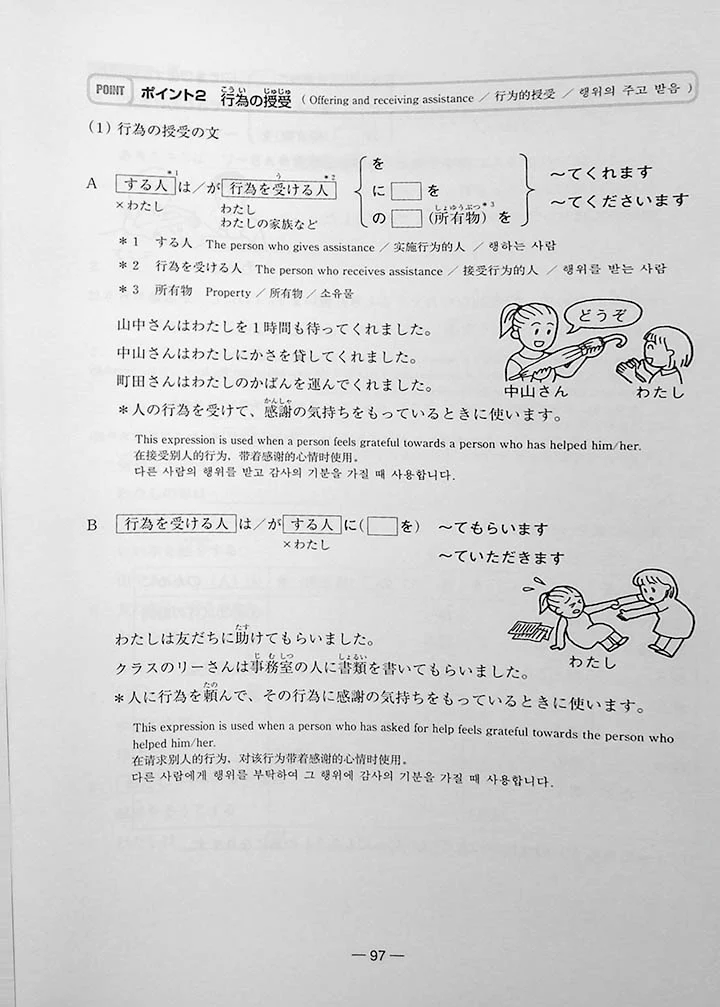 POINT ポイント2 行為の授受 ( Offering and receiving assistance ／ 行为的授受 ／ 행위의 주고 받음 )
こうい じゅじゅ
(1) 行為の授受の文
A する人*1は／が行為を受ける人*2 を ～てくれます
う
に□を ～てくださいます
の□(所有物)*3を
しょゆうぶつ
×わたし わたし
わたしの家族など
＊1 する人 The person who gives assistance ／ 实施行为的人 ／ 행하는 사람
＊2 行為を受ける人 The person who receives assistance ／ 接受行为的人 ／ 행위를 받는 사람
＊3 所有物 Property ／ 所有物 ／ 소유물
山中さんはわたしを1時間も待ってくれました。
中山さんはわたしにかさを貸してくれました。
町田さんはわたしのかばんを運んでくれました。
どうぞ
中山さん わたし
＊人の行為を受けて、感謝の気持ちをもっているときに使います。
かんしゃ
This expression is used when a person feels grateful towards a person who has helped him/her.
在接受别人的行为，带着感谢的心情时使用。
다른 사람의 행위를 받고 감사의 기분을 가질 때 사용합니다.
B 行為を受ける人は／がする人に(□を) ～てもらいます
×わたし ～ていただきます
わたし
わたしは友だちに助けてもらいました。
たす
クラスのリーさんは事務室の人に書類を書いてもらいました。
じむしつ しょるい
＊人に行為を頼んで、その行為に感謝の気持ちをもっているときに使います。
たの
This expression is used when a person who has asked for help feels grateful towards the person who
helped him/her.
在请求别人的行为，对该行为带着感谢的心情时使用。
다른 사람에게 행위를 부탁하여 그 행위에 감사의 기분을 가질 때 사용합니다.
— 97 —